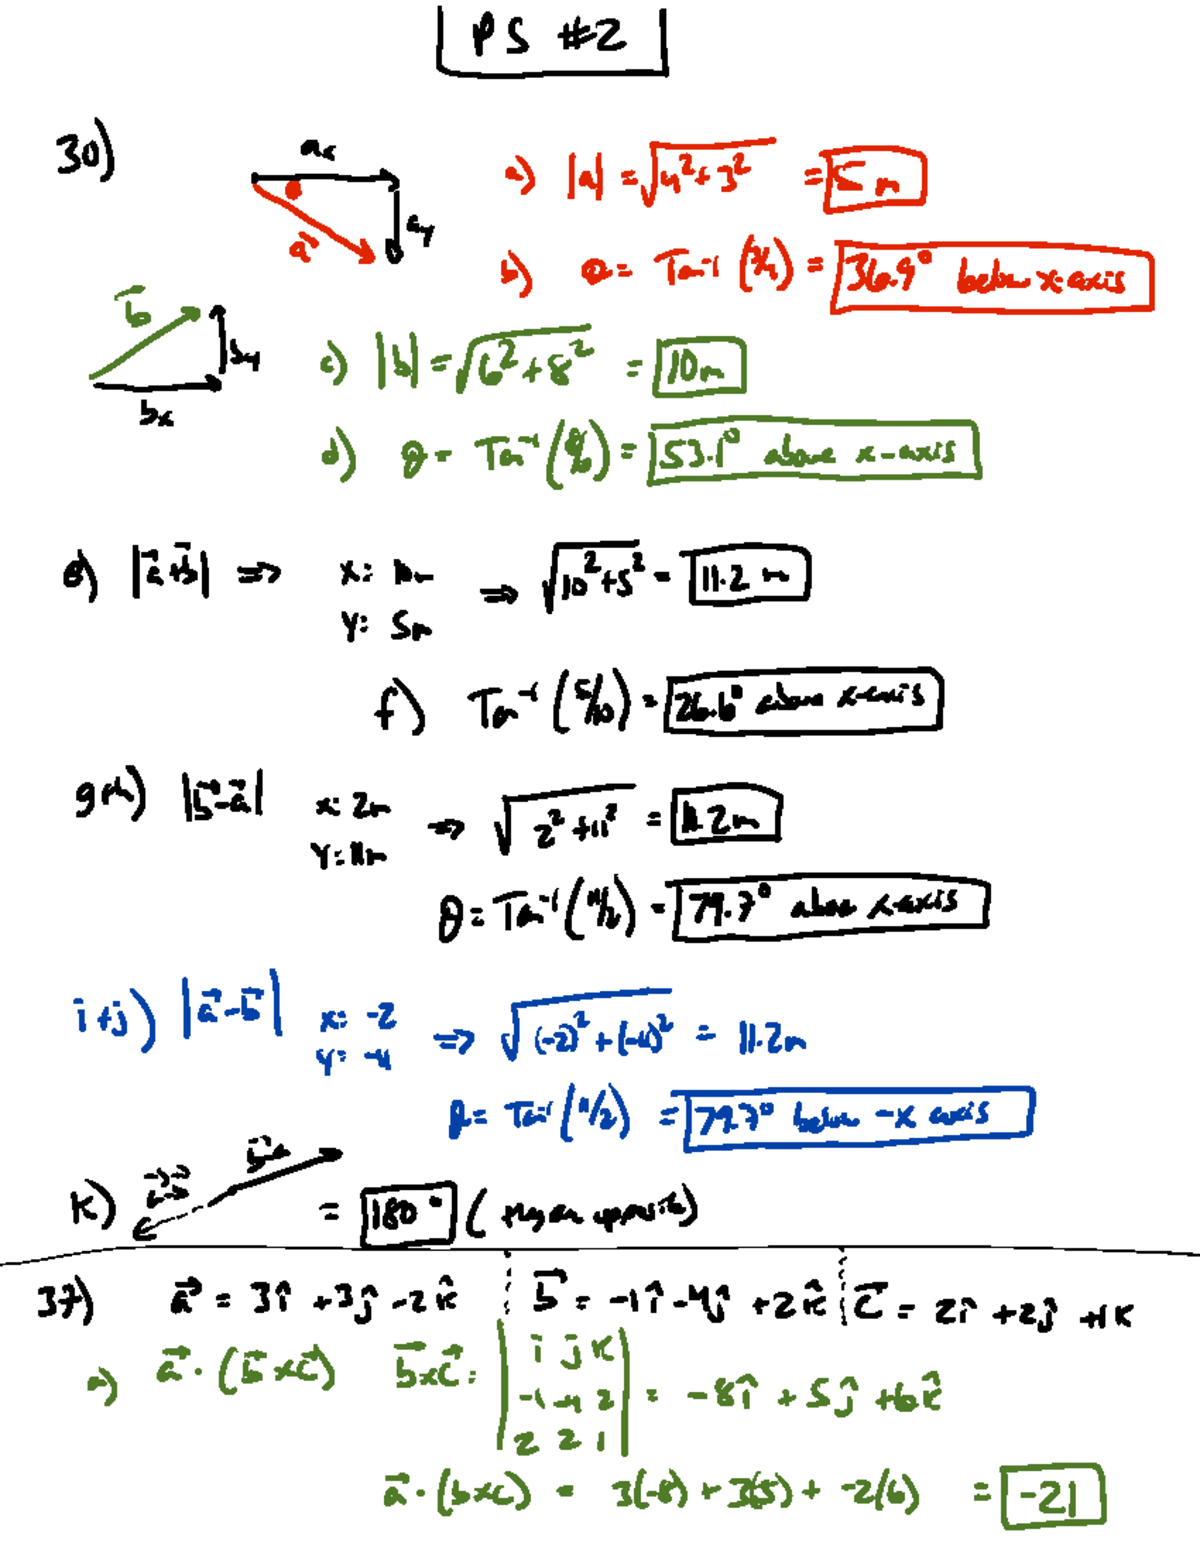 PS #2
30)
aₓ
θ
a⃗
a_y
a) |a| = √(4² + 3²) = 5 m
b) θ = Tan⁻¹ (3/4) = 36.9° below x-axis
b⃗
b_y
bₓ
c) |b| = √(6² + 8²) = 10m
d) θ = Tan⁻¹ (8/6) = 53.1° above x-axis
e) |a⃗+b⃗| => x: 10m => √(10² + 5²) = 11.2 m
y: 5m
f) Tan⁻¹ (5/10) = 26.6° above x-axis
g+h) |b⃗-a⃗| x: 2m => √(2² + 11²) = 11.2m
y: 11m
θ = Tan⁻¹ (11/2) = 79.7° above x-axis
i+j) |a⃗-b⃗| x: -2 => √((-2)² + (-11)²) = 11.2m
y: -11
θ = Tan⁻¹ (11/2) = 79.7° below -x axis
k) a⃗-b⃗ b⃗-a⃗ = 180° (they are opposite)
37) a⃗ = 3î + 3ĵ - 2k̂ b⃗ = -1î - 4ĵ + 2k̂ c⃗ = 2î + 2ĵ + 1k
a) a⃗ · (b⃗ x c⃗) b⃗ x c⃗ = | i j k |
| -1 -4 2 | = -8î + 5ĵ + 6k̂
| 2 2 1 |
a⃗ · (b x c) = 3(-8) + 3(5) + -2(6) = -21